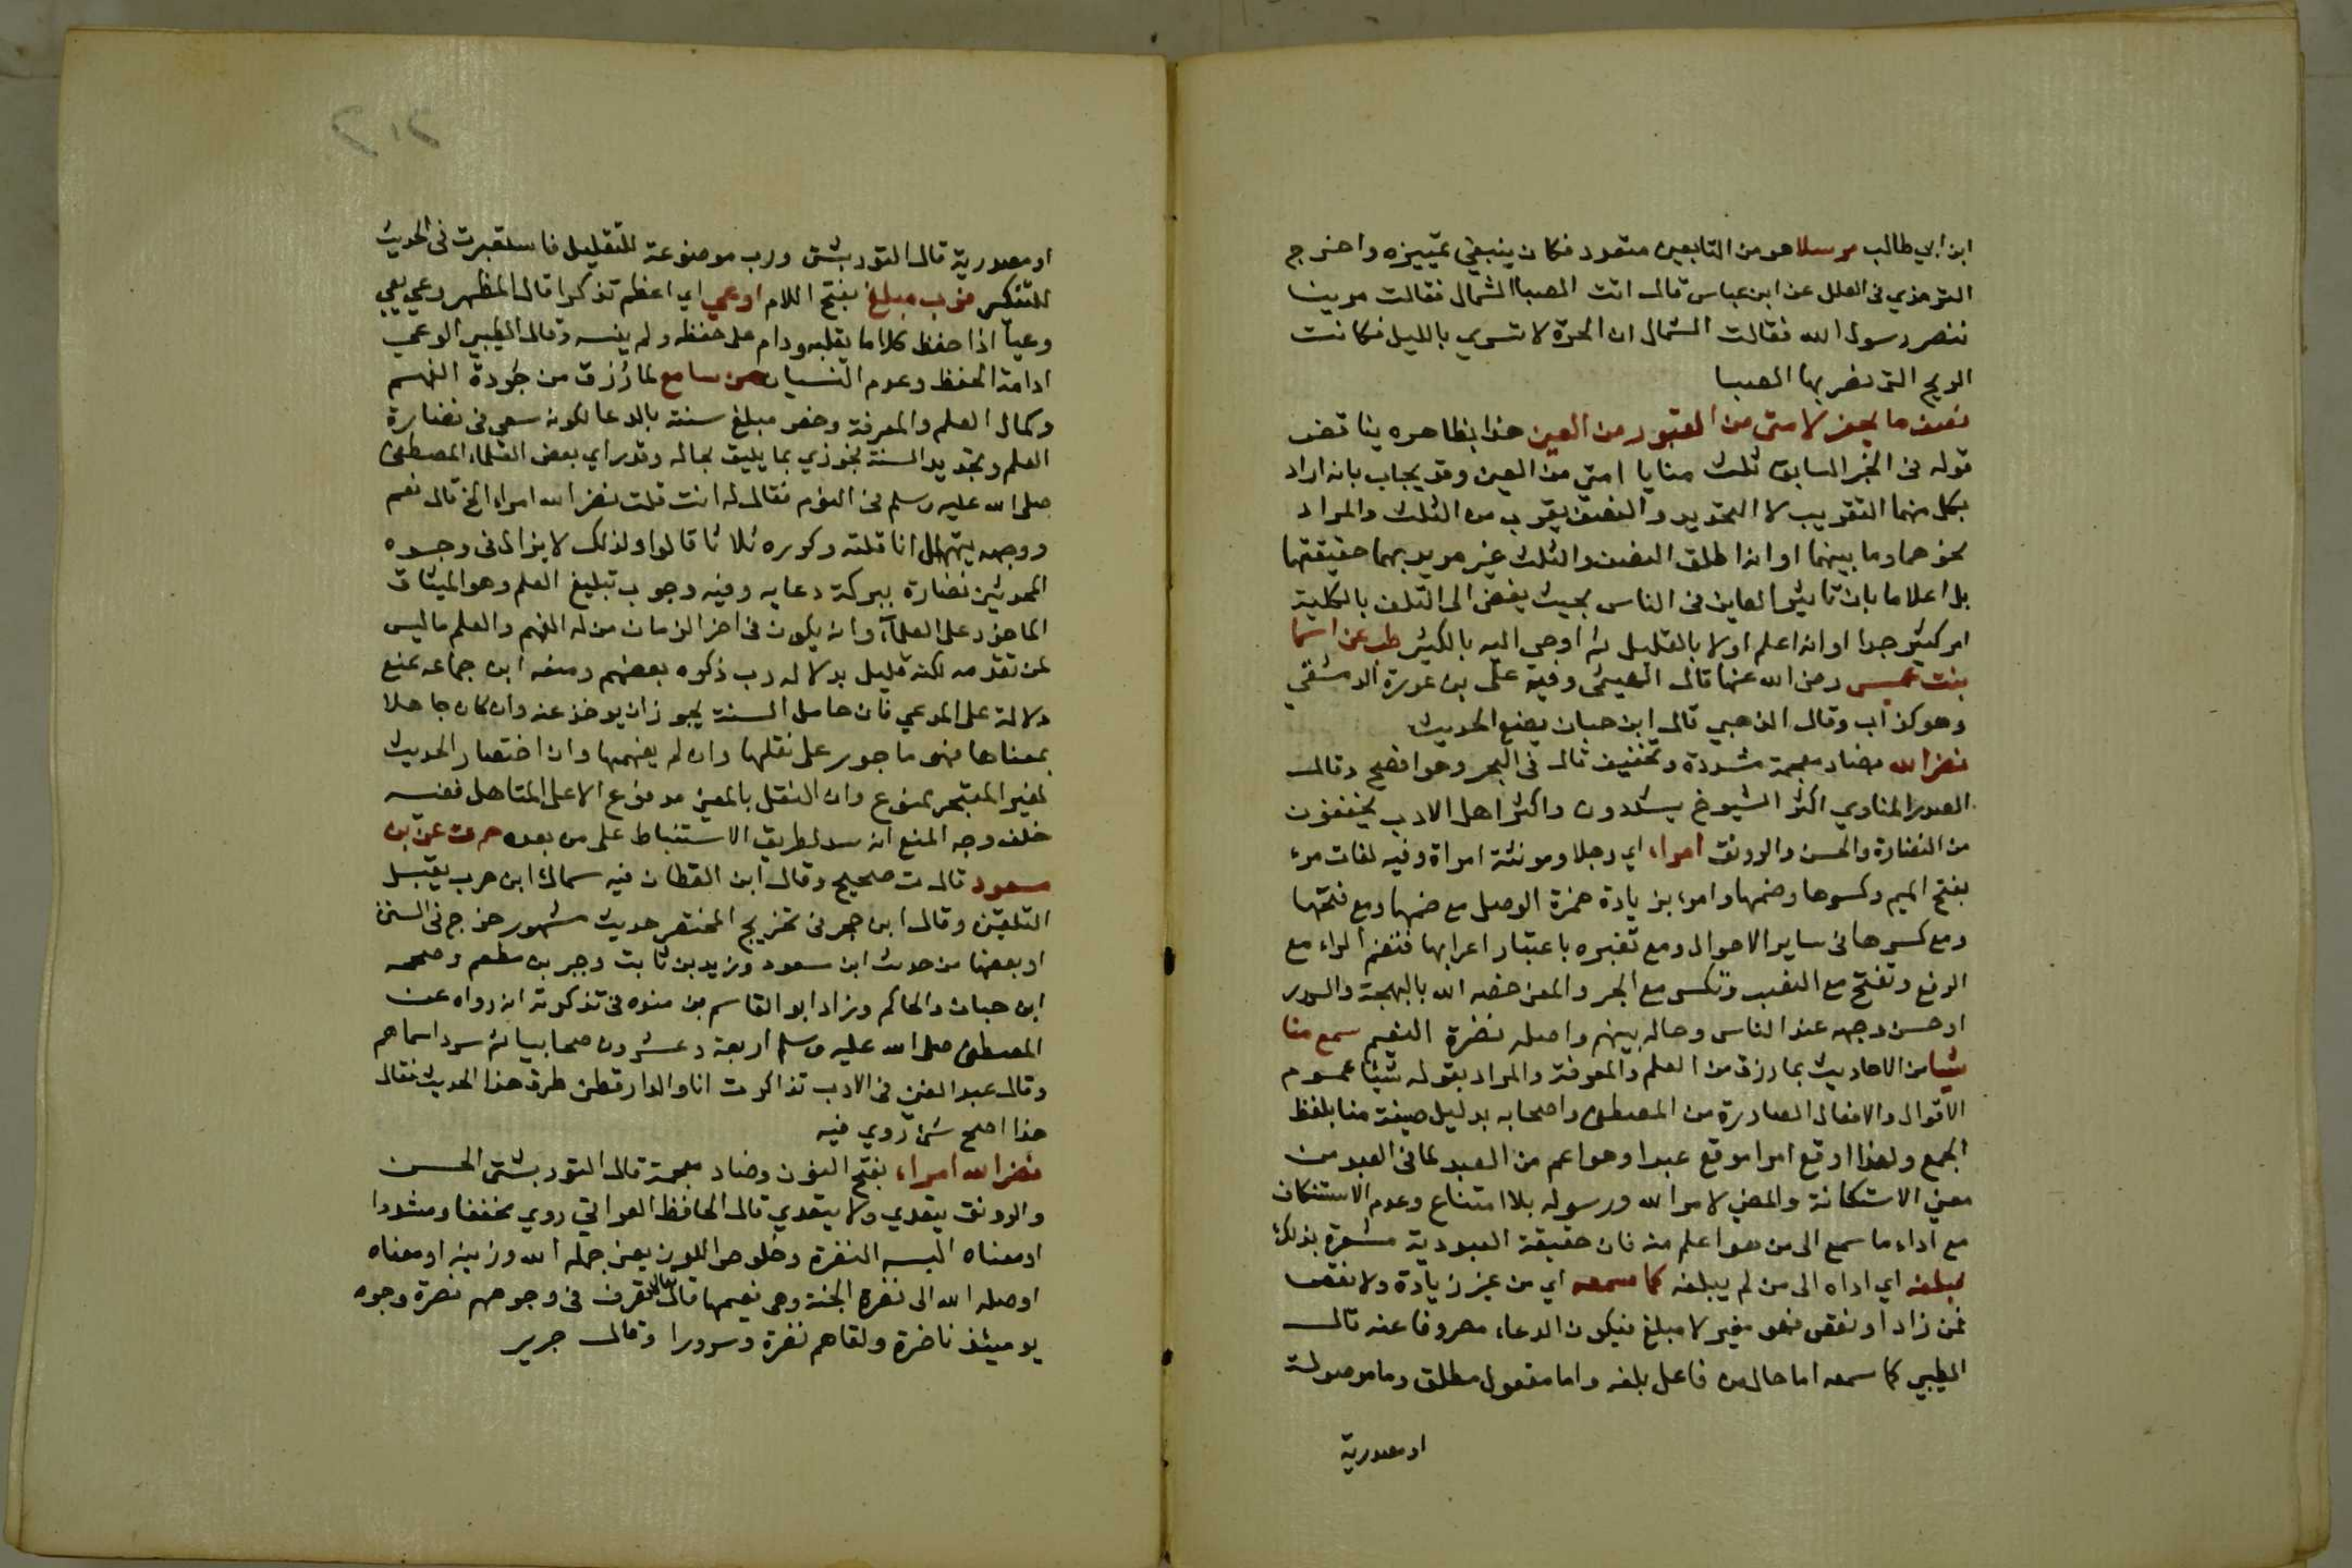 ابن ابي طالب مرسلا هو من التابعين متعدد فكان ينبغي تمييزه واخرج
الترمذي في العلل عن ابن عباس قال اتت الصبا الشمال فقالت مر بنا
ننصر رسول الله فقالت الشمال ان الحرة لا تسري بالليل فكانت
الريح التي نصر بها الصبا
نصف ما يحفر لامتي من القبور من العين هذا بظاهره يناقض
قوله في الخبر السابق ثلث منايا امتي من العين وقد يجاب بانه اراد
بكل منهما التقريب لا التحديد والنصف يقرب من الثلث والمراد
نحوهما وما بينهما او انه اطلق النصف والثلث غير مريد بهما حقيقتهما
بل اعلاما بان تاثير العاين في الناس بحيث يفضي الى التلف بالكلية
امر كثير جدا او انه اعلم اولا بالقليل ثم اوحي اليه بالكثير طب عن اسما
بنت عميس رضي الله عنها قال الهيثمي وفيه علي بن عروة الدمشقي
وهو كذاب وقال الذهبي قال ابن حبان يضع الحديث
نضر الله بضاد معجمة مشددة وتخفيف قال في البحر وهو افصح وقال
الصدر المناوي اكثر الشيوخ يشددون واكثر اهل الادب يخففون
من النضارة والحسن والرونق امرا، اي رجلا ومونثه امراة وفيه لغات مر،
بفتح الميم وكسرها وضمها وامر، بزيادة همزة الوصل مع ضمها ومع فتحها
ومع كسرها في ساير الاحوال ومع تغيره باعتبار اعرابها فتضم الراء مع
الرفع وتفتح مع النصب وتكسر مع الجر والمعنى خصه الله بالبهجة والسرور
او حسن وجهه عند الناس وحاله بينهم واصله نضرة النعيم سمع منا
شيا من الاحاديث بما رزق من العلم والمعرفة والمراد بقوله شيئا عموم
الاقوال والافعال الصادرة من المصطفى واصحابه بدليل صيغة منا بلفظ
الجمع ولهذا اوقع امرا موقع عبدا وهو اعم من العبد لما في العبد من
معنى الاستكانة والمضي لامر الله ورسوله بلا امتناع وعدم الاستنكاف
مع اداء ما سمع الى من هو اعلم منه فان حقيقة العبودية مشعرة بذلك
فبلغه اي اداه الى من لم يبلغه كما سمعه اي من غير زيادة ولا نقص
فمن زاد او نقص فهو مغير لا مبلغ فيكون الدعاء مصروفا عنه قال
الطيبي كما سمعه اما حال من فاعل بلغه واما مفعول مطلق وما موصولة
او مصدرية
او مصدرية قال التوربشتي ورب موضوعة للتقليل فاستعيرت في الحديث
للتكثير فرب مبلغ بفتح اللام اوعى اي اعظم تذكرا قال المظهر وعي يعي
وعيا اذا حفظ كلاما بقلبه ودام على حفظه ولم ينسه وقال الطيبي الوعي
ادامة الحفظ وعدم النسيان من سامع لما رزق من جودة الفهم
وكمال العلم والمعرفة وخص مبلغ سنته بالدعا لكونه سعى في نضارة
العلم وتجديد السنة فجوزي بما يليق بحاله وقد راي بعض العلماء المصطفى
صلى الله عليه وسلم في النوم فقال له انت قلت نضر الله امراء الخ قال نعم
ووجهه يتهلل انا قلته وكرره ثلاثا قالوا ولذلك لا يزال في وجوه
المحدثين نضارة ببركة دعايه وفيه وجوب تبليغ العلم وهو الميثاق
الماخوذ على العلماء، وانه يكون في اخر الزمان من له الفهم والعلم ما ليس
لمن تقدمه لكنه قليل بدلالة رب ذكره بعضهم ومنعه ابن جماعه بمنع
دلالة على المدعي فان حامل السنة يجوز ان يوخذ عنه وان كان جاهلا
بمعناها فهو ماجور على نقلها وان لم يفهمها وان اختصار الحديث
لغير المتبحر ممنوع وان النقل بالمعنى مدفوع الا على المتاهل ففيه
خلف وجه المنع انه سد لطريق الاستنباط على من بعده حم ت عن بن
مسعود قال ت صحيح وقال ابن القطان فيه سماك ابن حرب يقبل
التلقين وقال ابن حجر في تخريج المختصر حديث مشهور خرج في السنن
او بعضها من حديث ابن مسعود وزيد بن ثابت وجبر بن مطعم وصححه
ابن حبان والحاكم وزاد ابو القاسم بن منده في تذكرته انه رواه عن
المصطفى صلى الله عليه وسلم اربعة وعشرون صحابيا ثم سرد اسماهم
وقال عبد الغني في الادب تذاكرت انا والدارقطني طرق هذا الحديث فقال
هذا اصح شئ روي فيه
نضر الله امرا، بفتح النون وضاد معجمة قال التوربشتي الحسن
والرونق يتعدي ولا يتعدي قال الحافظ العراقي روي مخففا ومشددا
او معناه البسه النضرة وخلوص اللون يعني جمله الله وزينه او معناه
اوصله الله الى نضرة الجنة وهي نعيمها قال تعالى تعرف في وجوههم نضرة وجوه
يوميئذ ناضرة ولقاهم نضرة وسرورا وقال جرير